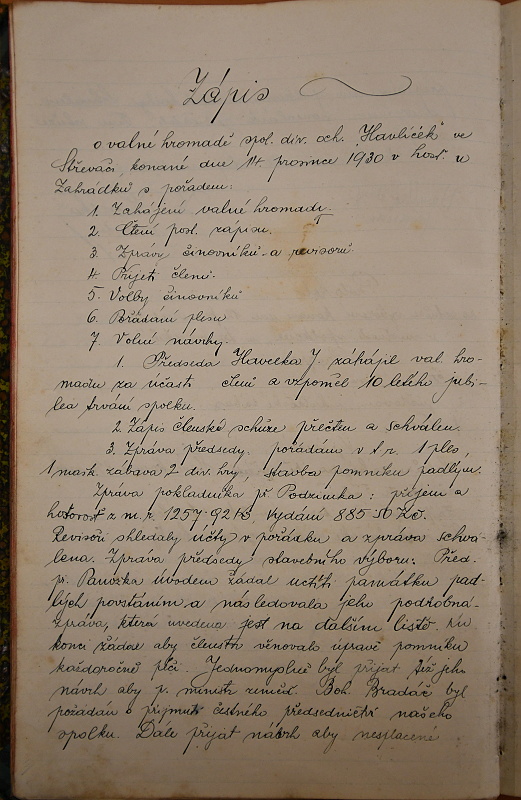 Zápis
o valné hromadě spol. div. och. "Havlíček" ve
Střevači, konané dne 14. prosince 1930 v host. u
Zahrádků s pořadem:
1. Zahájení valné hromady.
2. Čtení posl. zápisu.
3. Zprávy činovníků a revisorů.
4. Přijetí členů.
5. Volby činovníků
6. Pořádání plesu
7. Volné návrhy.
1. Předseda Havelka J. záhájil val. hro-
madu za účasti členů a vzpoměl 10 letého jubi-
lea trvání spolku.
2. Zápis členské schůze přečten a schválen.
3. Zpráva předsedy: pořádám v t. r. 1 ples,
1 mašk. zábava 2 div. hry, stavba pomníku padlým.
Zpráva pokladníka př. Podzimka: příjem a
hotovost z m. r. 1257·92 Kč, vydání 885·50 Kč.
Revisoři shledaly účty v pořádku a zpráva schvá-
lena. Zpráva předsedy stavebního výboru: Před.
př. Panuška úvodem žádal uctíti památku pad-
lých povstáním a následovala jeho podrobná
zpráva, která uvedena jest na dalším listě. Na
konci žádal aby členstvo věnovalo úpravě pomníku
každoročně péči. Jednomyslně byl přijat též jeho
návrh aby p. ministr zeměd. Boh. Bradáč byl
požádán o přijmutí čestného předsednictví našeho
spolku. Dále přijat návrh aby nesplacené